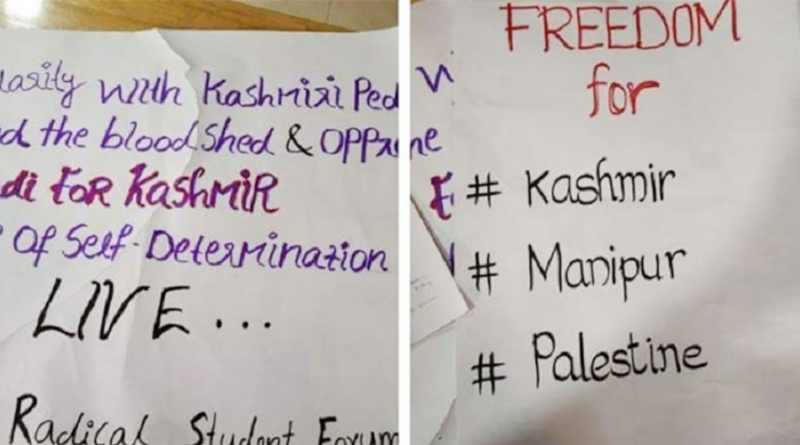 larity with Kashmiri Peo
d the bloodshed & OPPre
di FOR KASHMIR
Of Self-Determination
LIVE...
Radical Student Forum
FREEDOM
for
# Kashmir
# Manipur
# Palestine